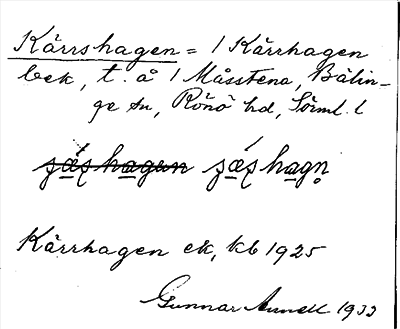 Kärrshagen = 1 Kärrhagen
bek, t. å 1 Måsstena, Bälin-
ge sn, Rönö hd, Sörml. l
hagn
Kärrhagen ek, kb 1925
Gunnar 1933